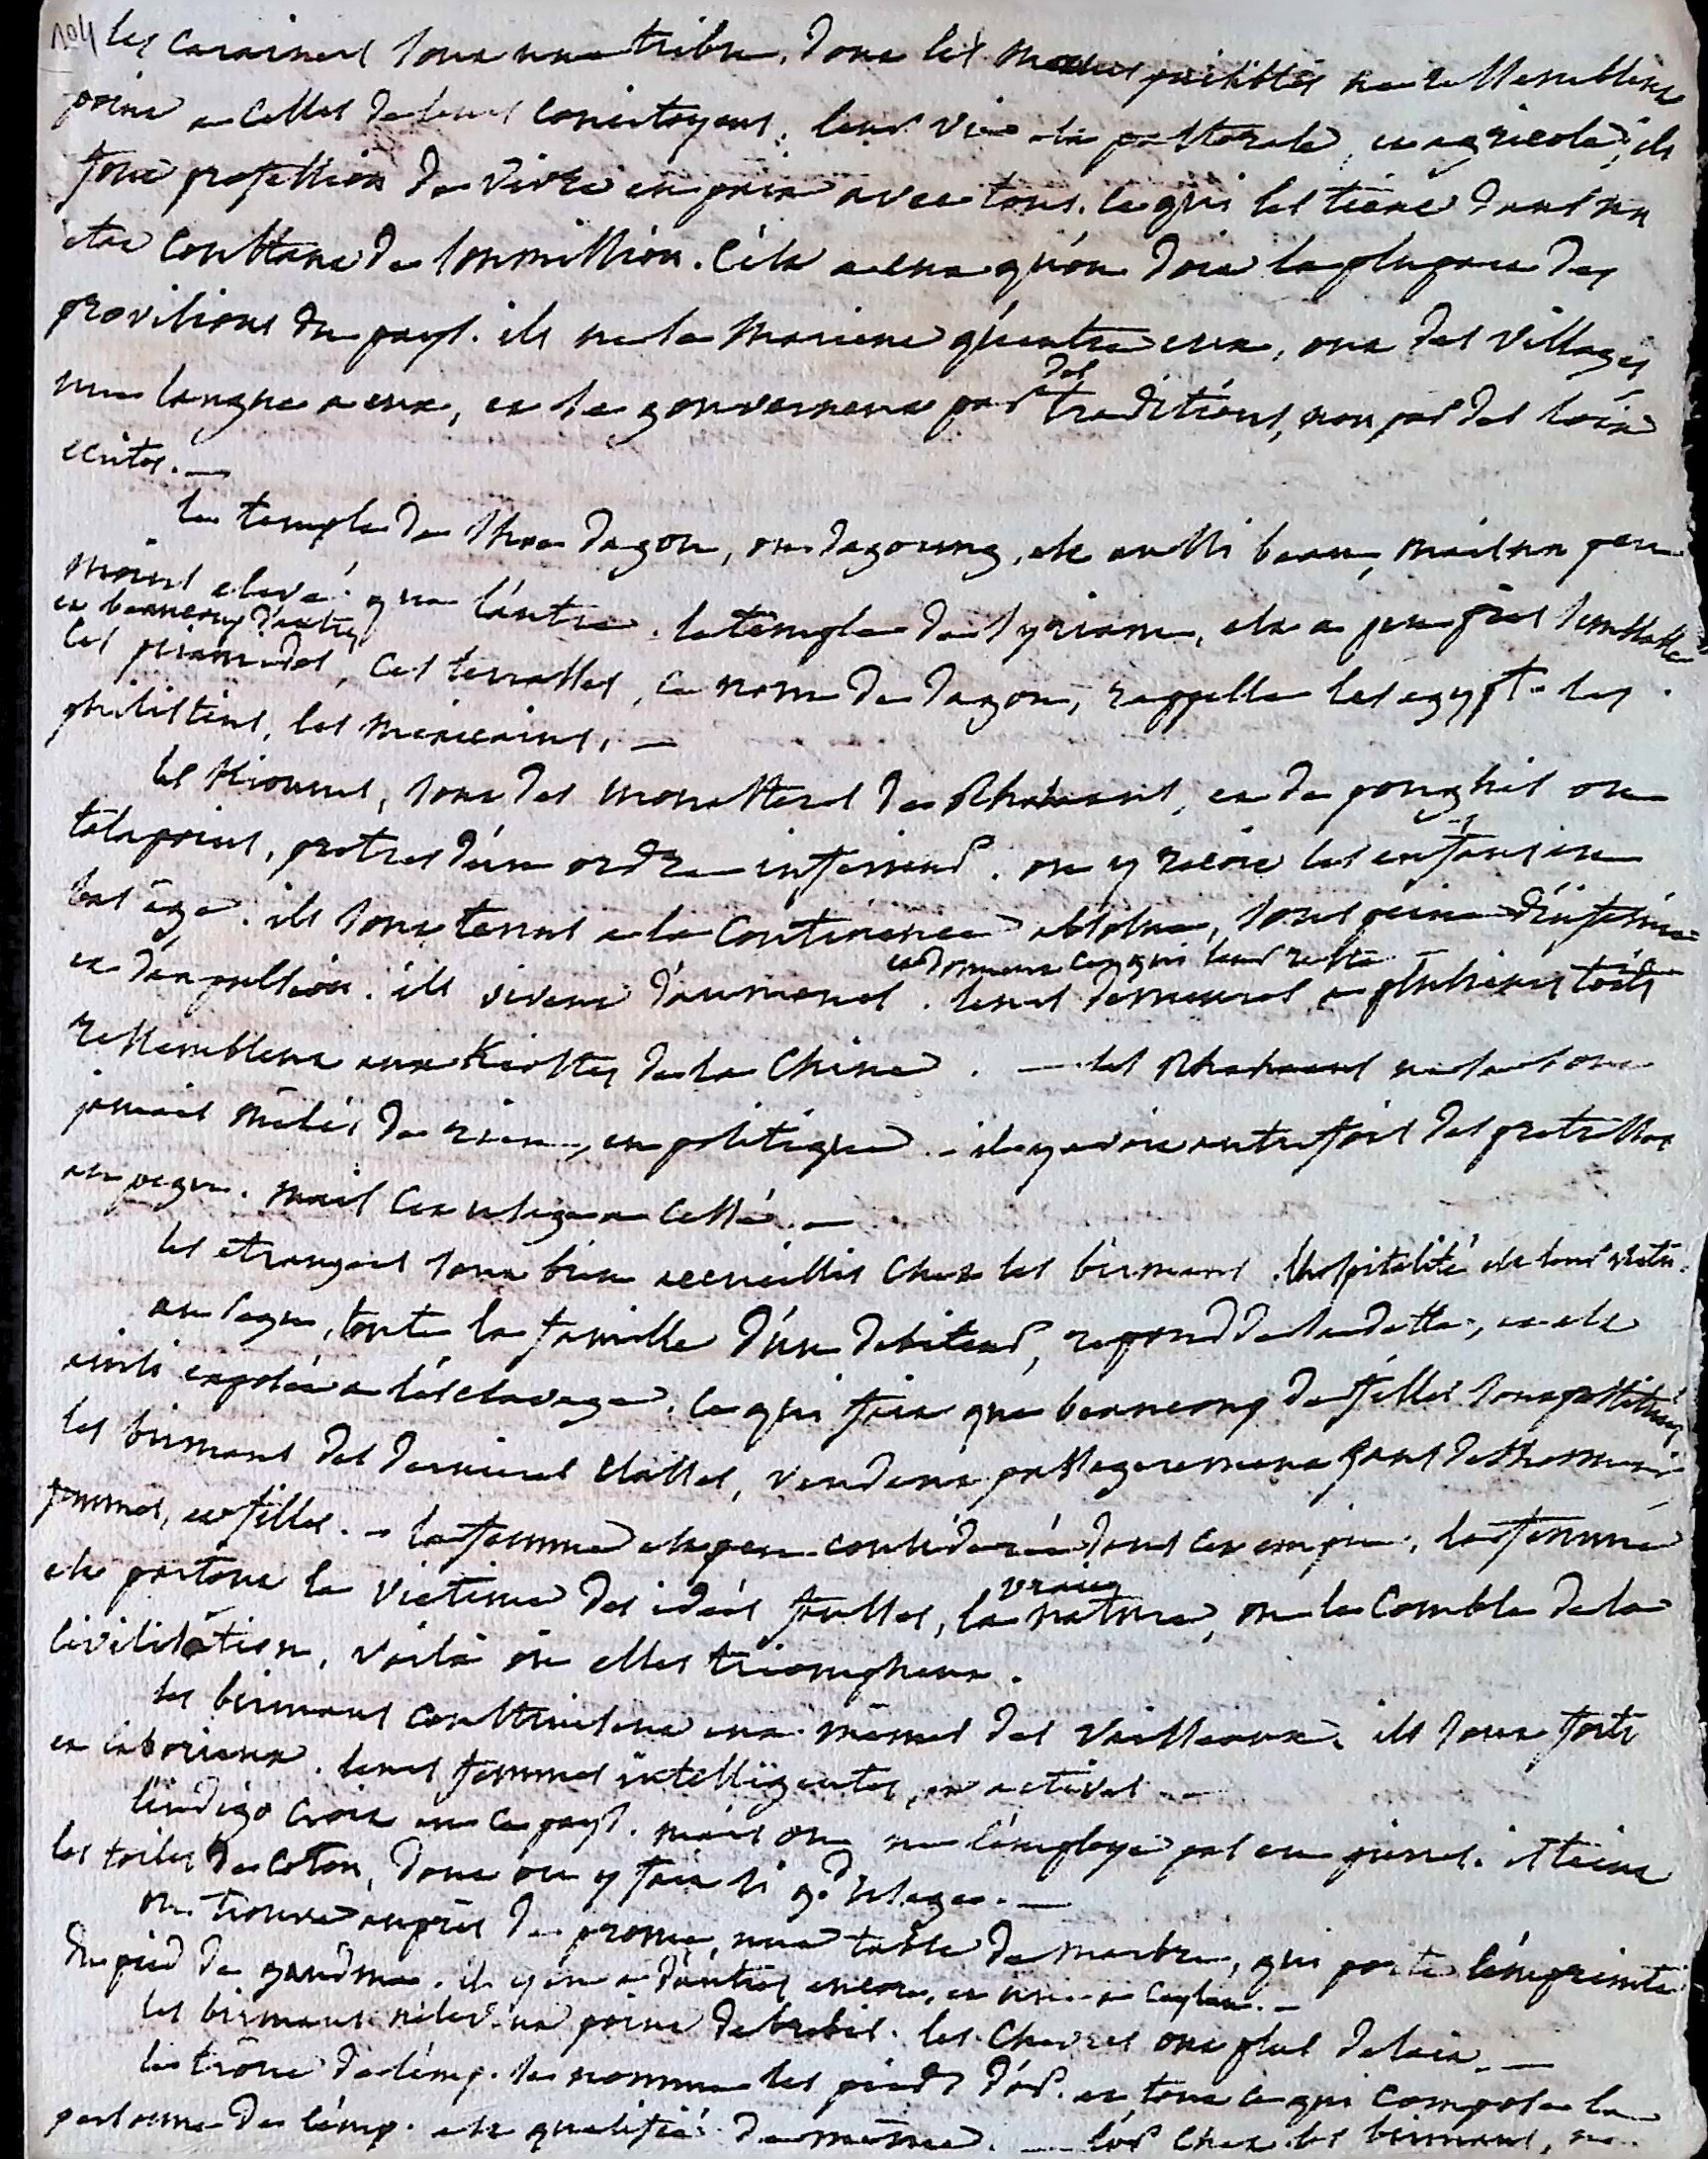 104 les carainers sont une tribu, dont les moeurs paisibles ne ressemblent
point a celles de leurs concitoyens. leur vie est pastorale, et agricole, ils
font profession de vivre en paix avec tous. ce qui les tient dans un
etat constant de soumission. c'est a eux qu'on doit la plupart des
provisions du pays. ils ne se marient qu'entre eux, ont des villages
une langue a eux, et se gouvernent par des traditions, non par des loix
ecrites. —
le temple de Shoe dagon, ou dagoung, est aussi beau, mais un peu
moins elevé que l'autre. le temple de Syriam, est a peu près semblable
et beaucoup d'autres
ces piramides, ces terrasses, ce nom de dagon, rappelle les egypt. les
philistins, les mexicains. —
les Kioums, sont des monasteres de Rhahaans, et de ponghis ou
talapoins, pretres d'un ordre inferieur. on y reçoit les enfans en
bas âge. ils sont tenus a la continence absolue, sous peine d'infamie
et d'expulsion. ils vivent d'aumones. et donnent ce qui leur reste. leurs demeures a plusieurs toits
ressemblent aux Kiostes de la Chine. — les Rhahaans ne se sont
jamais mêlés de rien, en politique. – il y avoit autrefois des pretresses
au pegu. mais cet usage a cessé. —
les etrangers sont bien accueillis chez les birmans. l'hospitalité est leur vertu.
au Pegu, toute la famille d'un debiteur, repond de sa dette, et est
ainsi exposée a l'esclavage. ce qui fait que beaucoup de filles sont prostituées
les birmans des dernieres classes, vendent passagerement aux
femmes, et filles. – la femme est peu considerée dans cet empire. la femme
est partout la victime des idées fausses, la vraie nature, ou le comble de la
civilisation, voilà où elles triomphent.
les birmans construisent eux mêmes des vaisseaux. ils sont forts
et laborieux. leurs femmes intelligentes, et actives. —
l'indigo croit en ce pays. mais on ne l'employe pas en pierres. il teint
les toiles de coton, dont on y fait si gd usage. —
on trouve auprès de prome, une table de marbre, qui porte l'empreinte
du pied de gaudma. il y en a d'autres encore, et une a Ceylan. —
les birmans n'elevent point de brebis. les chevres ont plus de lait. —
le trône de l'emp. se nomme les pieds d'or. et tout ce qui compose la
personne de l'emp. est qualifié de même. — l'or chez les birmans,